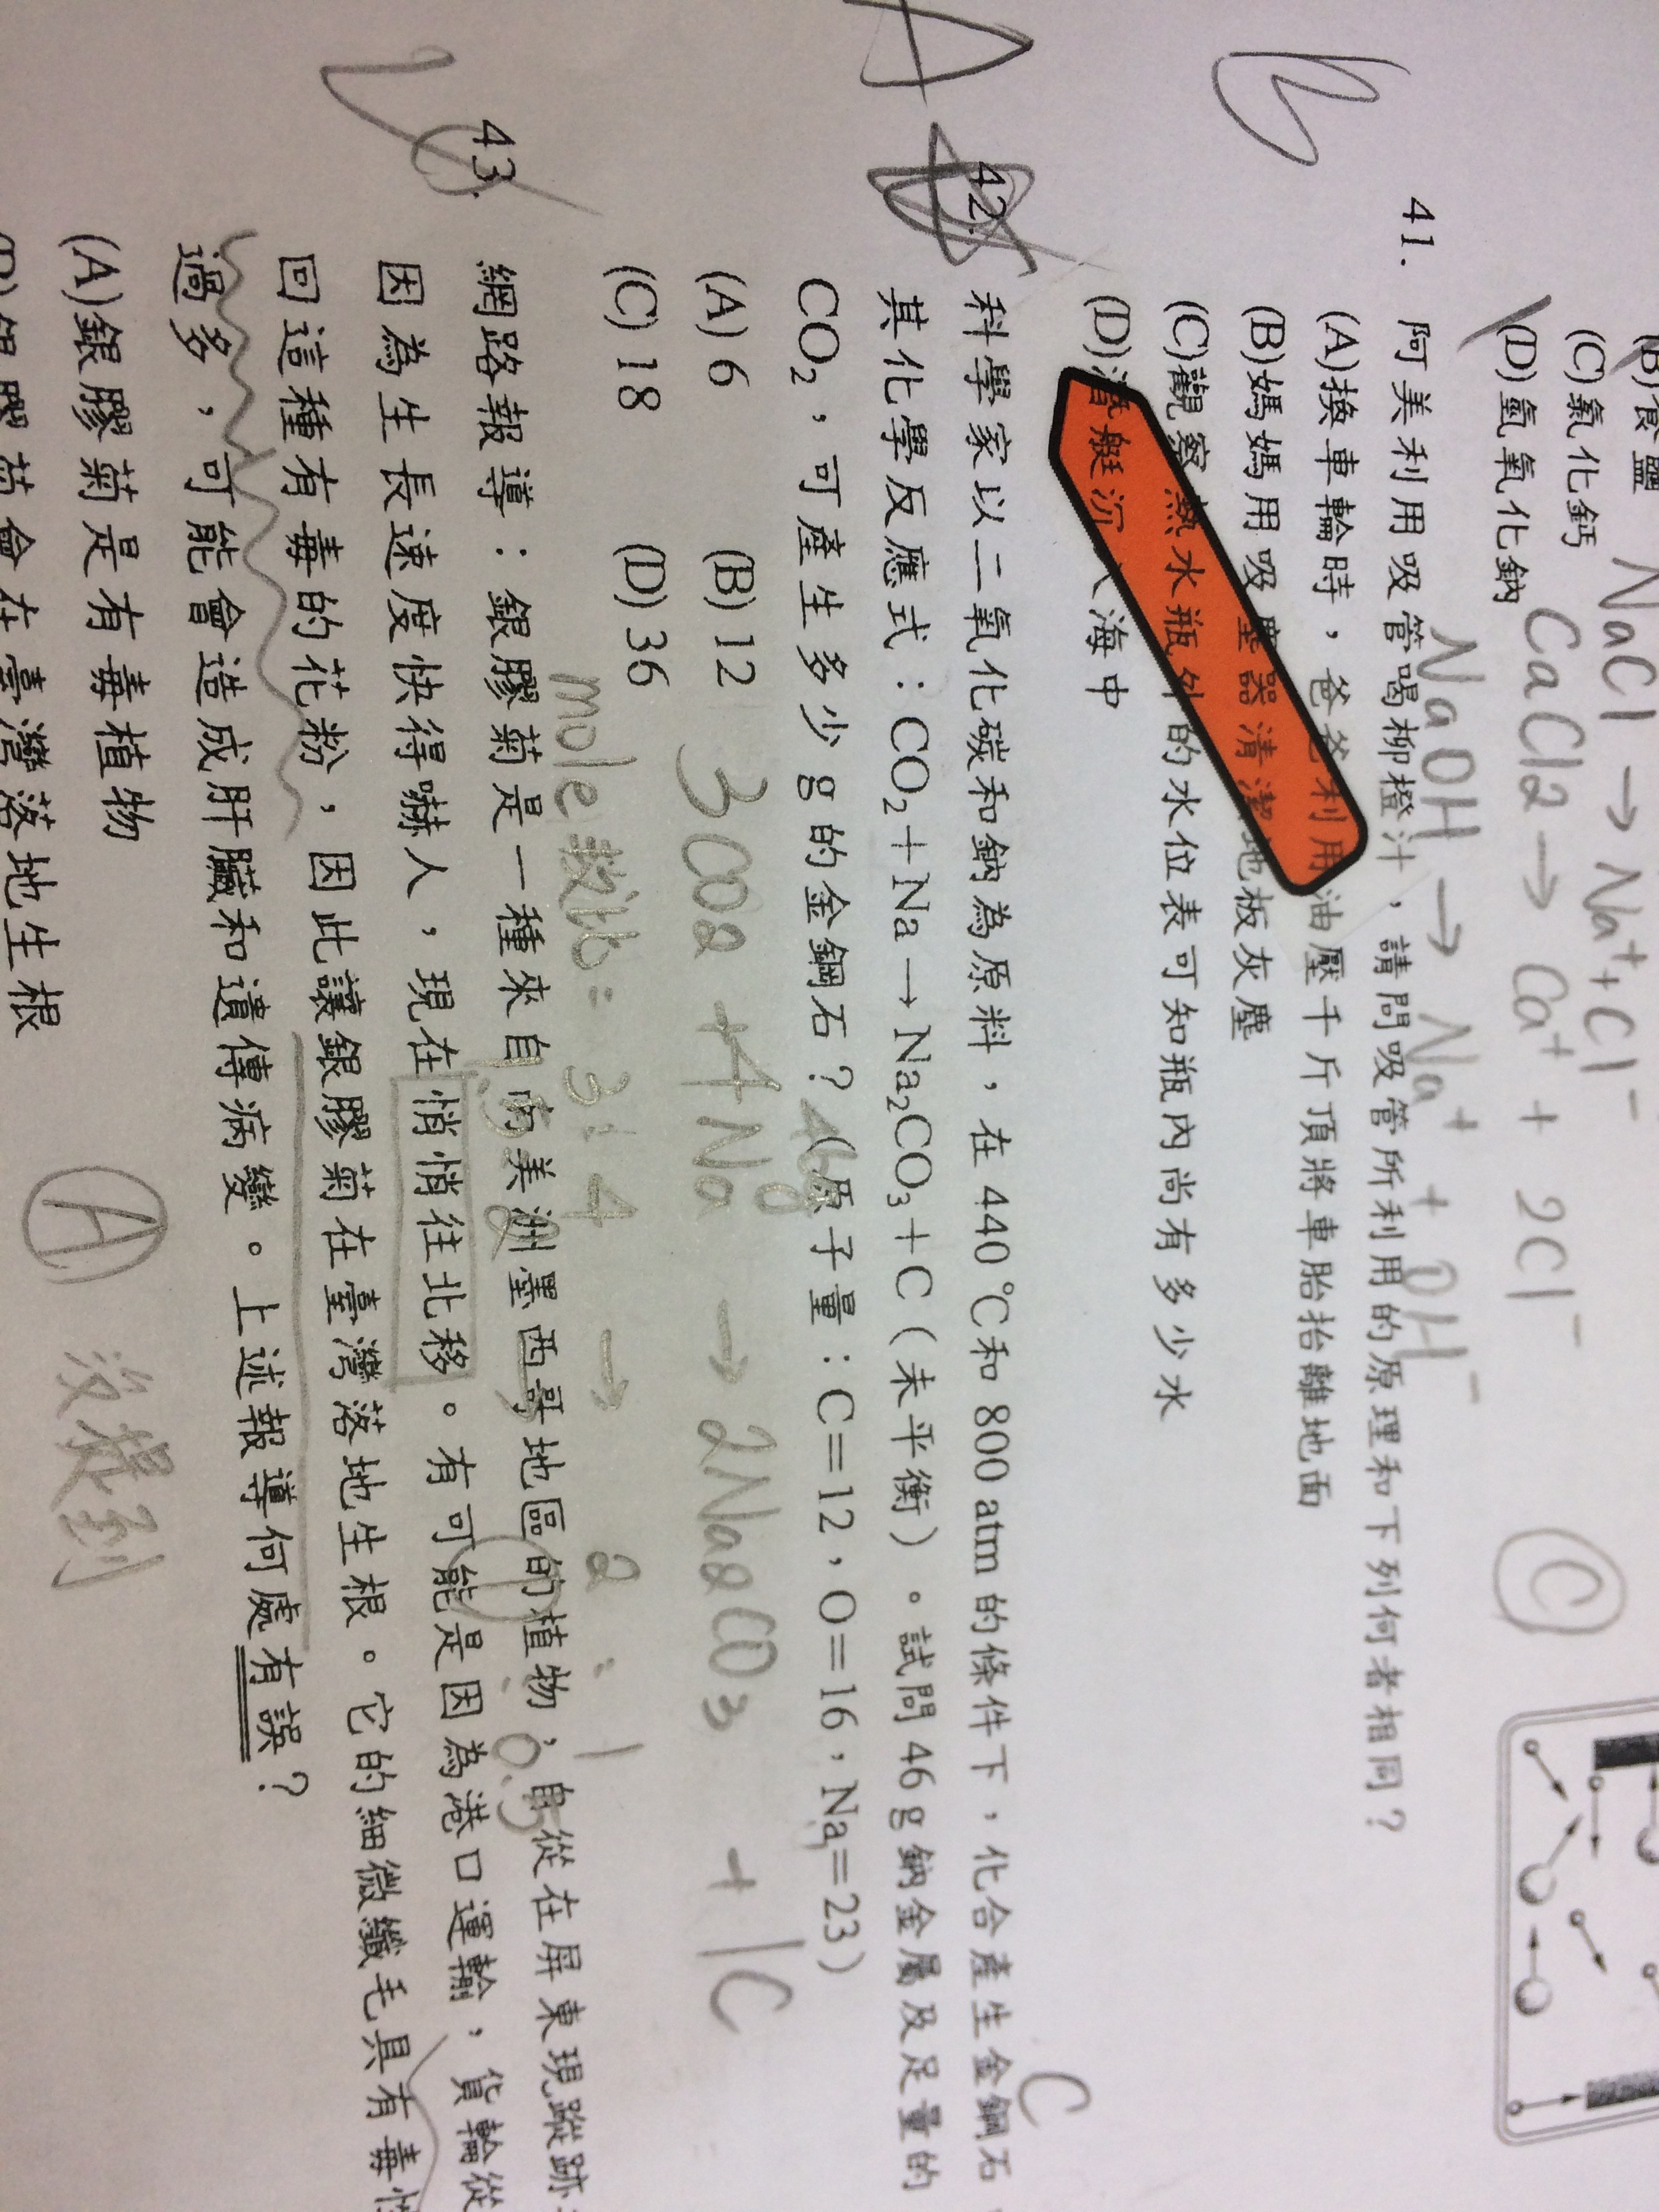 (B)食鹽
NaCl → Na⁺ + Cl⁻
(C)氯化鈣
CaCl2 → Ca⁺ + 2Cl⁻
(D)氫氧化鈉
NaOH → Na⁺ + OH⁻
C
B
41. 阿美利用吸管喝柳橙汁，請問吸管所利用的原理和下列何者相同？
(A)換車輪時，爸爸利用油壓千斤頂將車胎抬離地面
(B)媽媽用吸塵器清潔地板灰塵
(C)觀察熱水瓶外的水位表可知瓶內尚有多少水
(D)潛艇沉入海中
A
C
42. 科學家以二氧化碳和鈉為原料，在 440 ℃和 800 atm 的條件下，化合產生金鋼石，
其化學反應式：CO₂＋Na→Na₂CO₃＋C（未平衡）。試問 46 g 鈉金屬及足量的
CO₂，可產生多少 g 的金鋼石？（原子量：C＝12，O＝16，Na＝23）
46g
(A) 6 (B) 12
3CO2 + 4Na → 2Na2CO3 + 1C
(C) 18 (D) 36
mole數比: 3 : 4 → 2 : 1
2
1
0.5
43. 網路報導：銀膠菊是一種來自南美洲墨西哥地區的植物，自從在屏東現蹤跡
因為生長速度快得嚇人，現在悄悄往北移。有可能是因為港口運輸，貨輪從
回這種有毒的花粉，因此讓銀膠菊在臺灣落地生根。它的細微纖毛具有毒性
過多，可能會造成肝臟和遺傳病變。上述報導何處有誤？
(A)銀膠菊是有毒植物
A 沒提到
銀膠菊會在臺灣落地生根